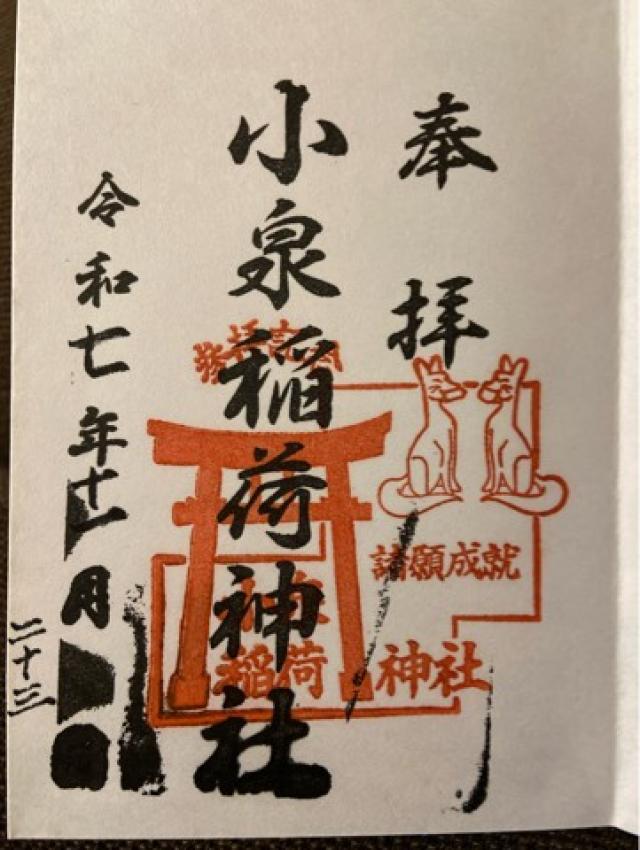 奉拝
小泉稲荷神社
令和七年十一月
二十三
諸願成就
稲荷神社